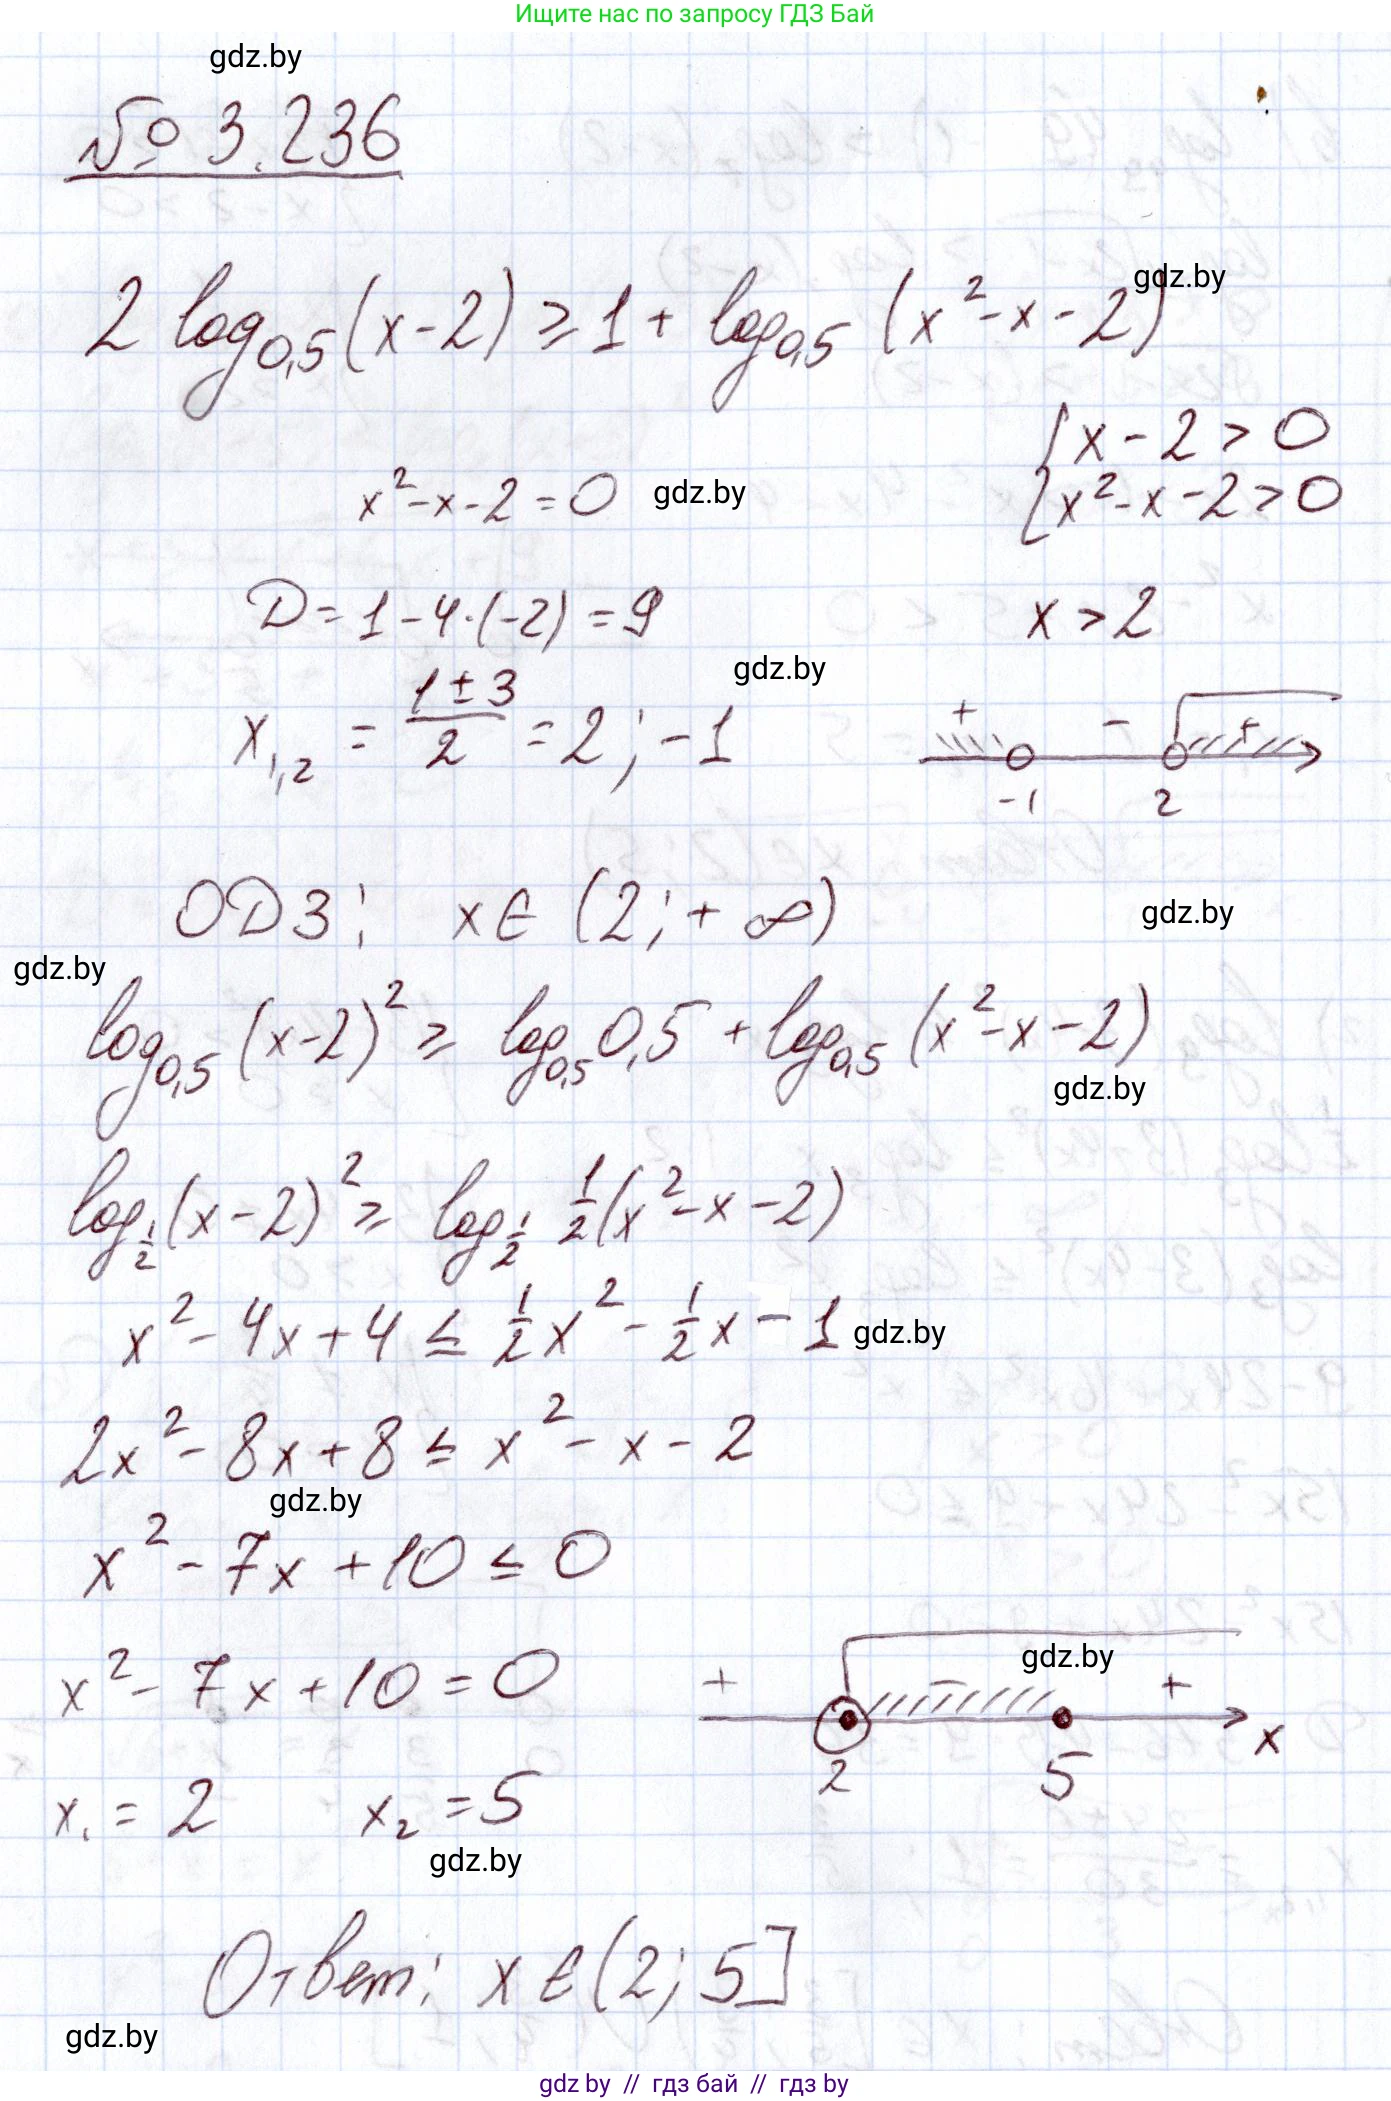 Ищите нас по запросу ГДЗ Бай
gdz.by
№ 3.236
gdz.by
2 log₀,₅(x-2) ≥ 1 + log₀,₅ (x²-x-2)
{ x-2 > 0
x²-x-2 = 0 gdz.by { x²-x-2 > 0
D = 1-4·(-2) = 9 x > 2
gdz.by
x₁,₂ = (1±3)/2 = 2; -1
+ - +
-1 2
ОДЗ: x ∈ (2; +∞) gdz.by
gdz.by
log₀,₅(x-2)² ≥ log₀,₅ 0,5 + log₀,₅ (x²-x-2)
gdz.by
log_{1/2}(x-2)² ≥ log_{1/2} 1/2(x²-x-2)
x² - 4x + 4 ≤ 1/2x² - 1/2x - 1 gdz.by
2x² - 8x + 8 ≤ x² - x - 2
gdz.by
x² - 7x + 10 ≤ 0
gdz.by
x² - 7x + 10 = 0
+ - +
2 5 x
x₁ = 2 x₂ = 5
gdz.by
Ответ: x ∈ (2; 5]
gdz.by
gdz by // гдз бай // гдз by